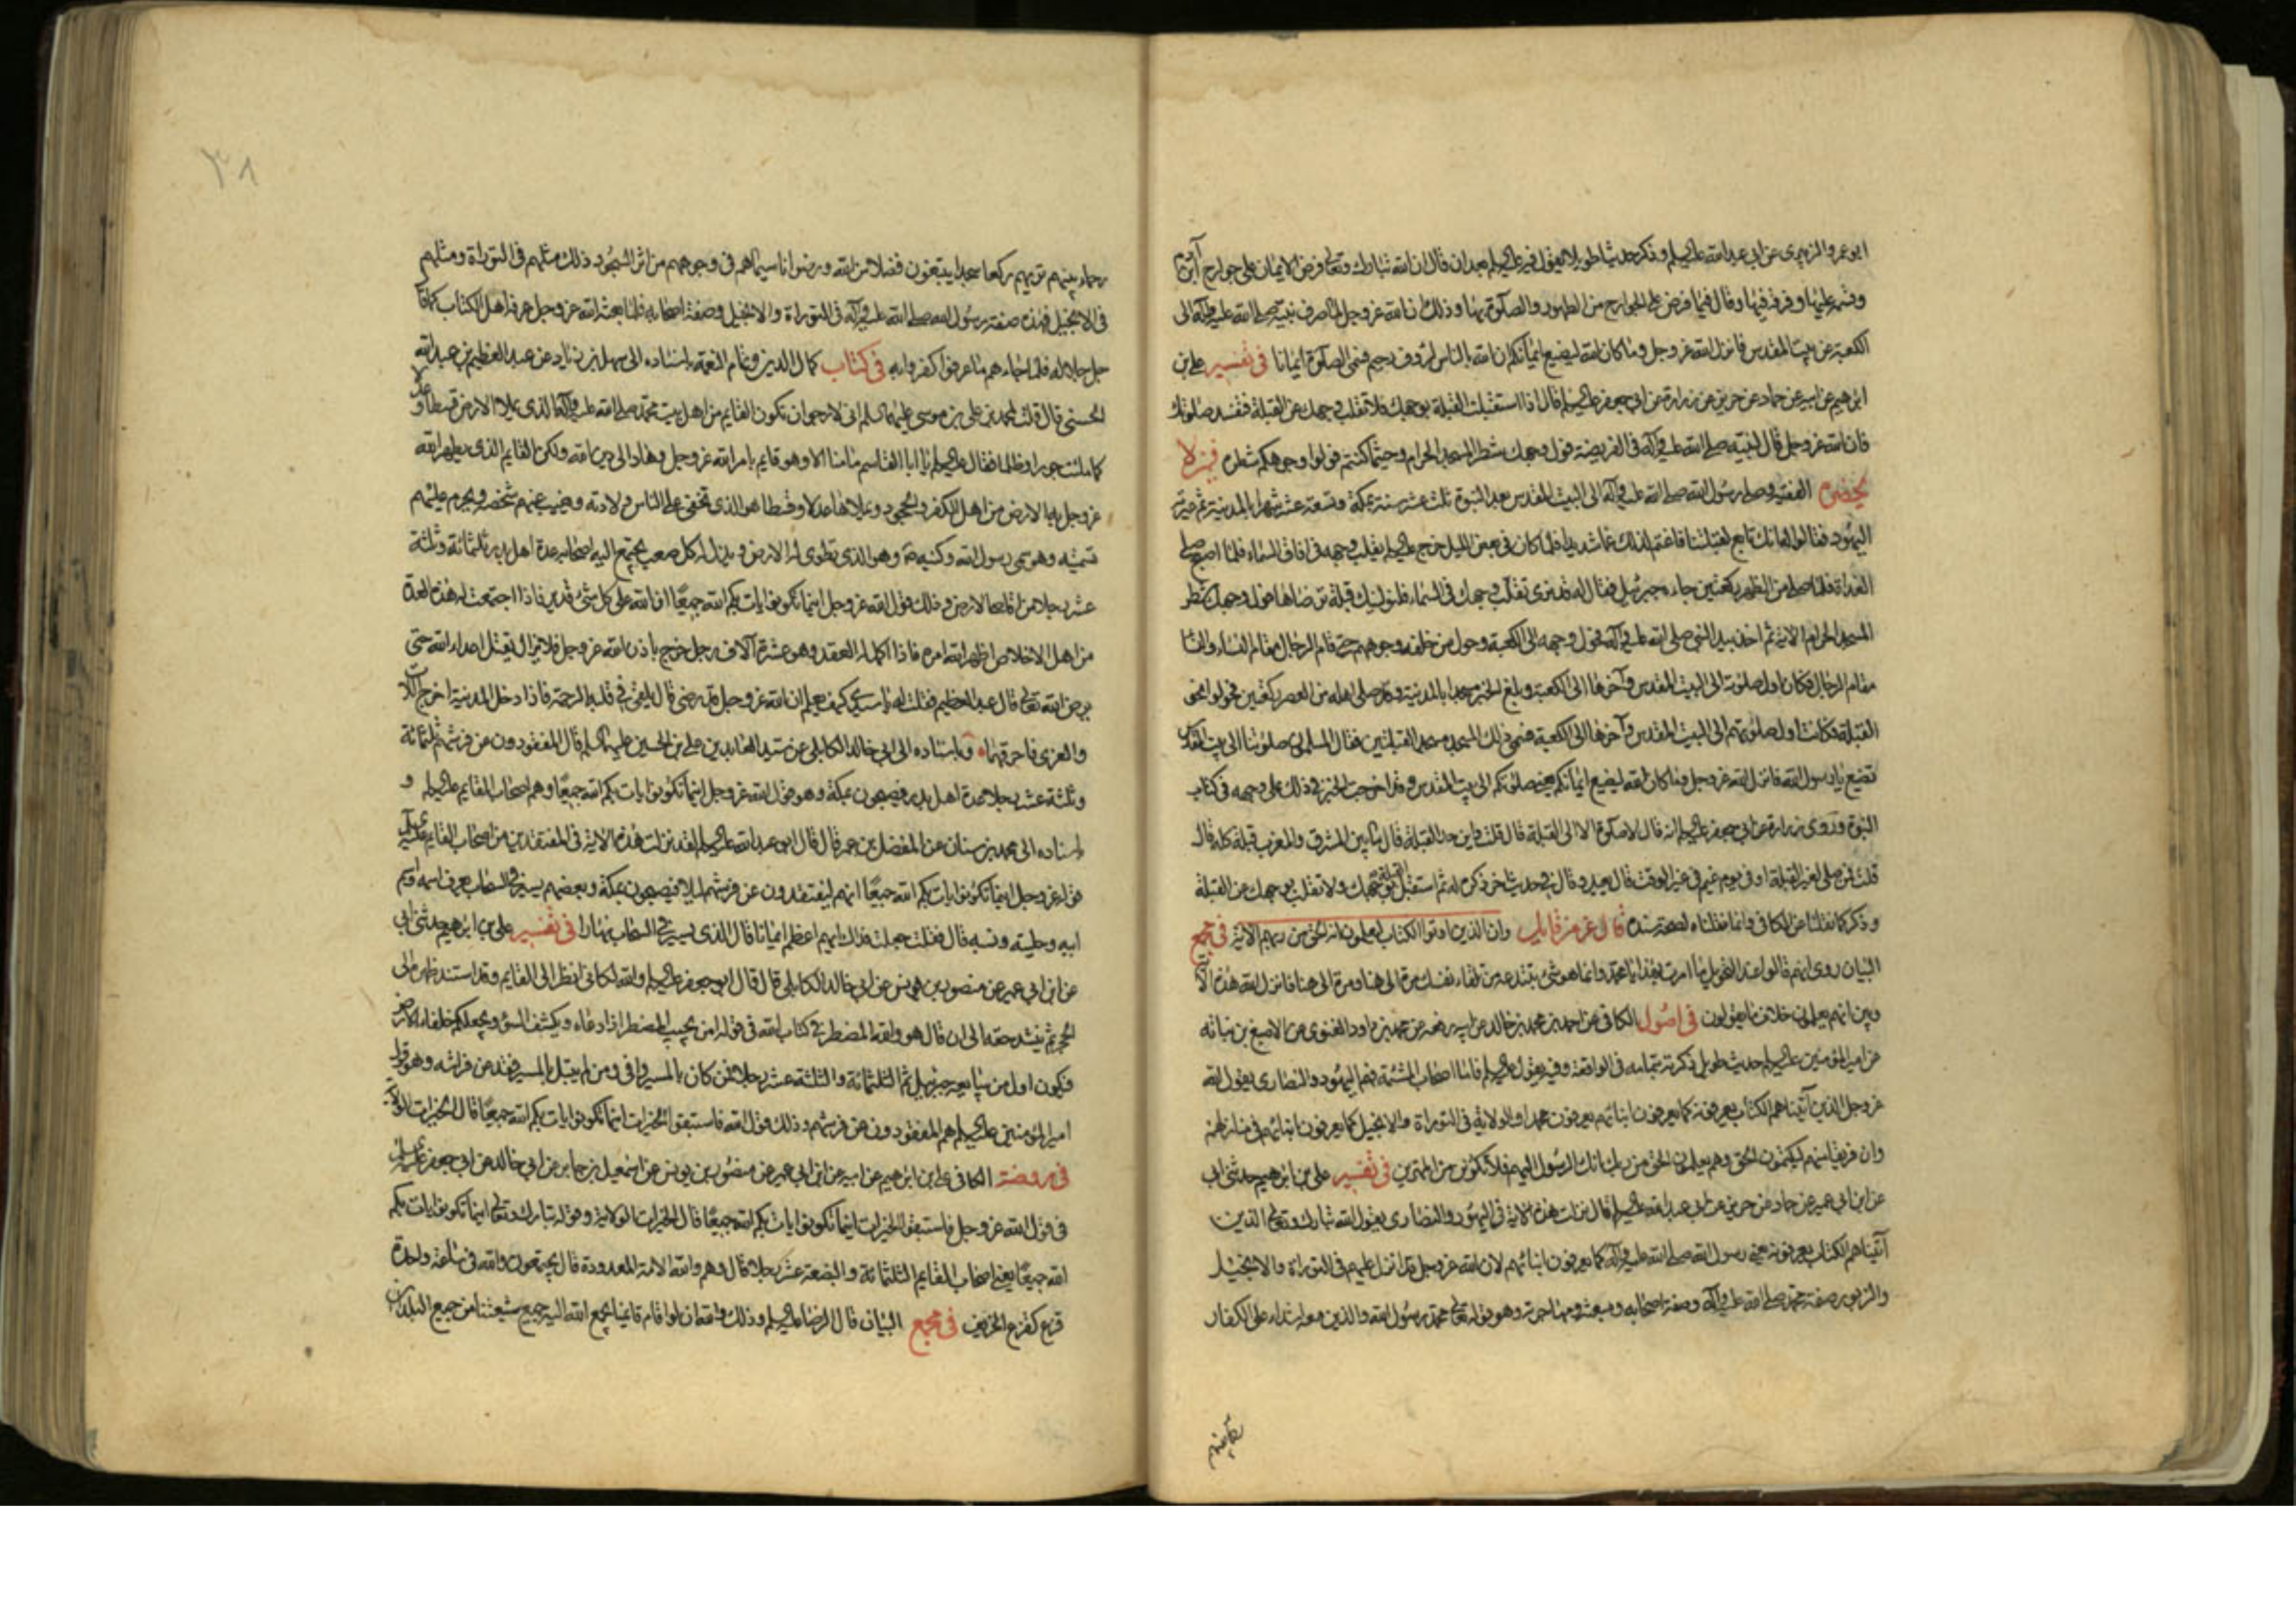 ابو عمرو الزبيرى عن ابى عبد الله عليه السلم و ذكر حديثا طويلا يقول فيه عليه السلم بعد ان قال ان الله تبارك وتعالى فرض الايمان على جوارح ابن آدم
وقسمه عليها وفرقه فيها وقال فيما فرض على الجوارح من الطهور والصلوة بها وذلك ان الله عز وجل لما صرف نبيه صلى الله عليه وآله الى
الكعبة عن بيت المقدس فانزل الله عز وجل وما كان الله ليضيع ايمانكم ان الله بالناس لرؤف رحيم فسمى الصلوة ايمانا فى تفسير على بن
ابرهيم عن ابيه عن حماد عن حريز عن زرارة عن ابى جعفر عليه السلم قال اذا استقبلت القبلة بوجهك فلا تقلب وجهك عن القبلة فتفسد صلوتك
فان الله عز وجل قال لنبيه صلى الله عليه وآله فى الفريضة فول وجهك شطر المسجد الحرام وحيثما كنتم فولوا وجوهكم شطره فيمن لا
يحضره الفقيه وصلى رسول الله صلى الله عليه وآله الى البيت المقدس بعد النبوة ثلث عشر سنة بمكة وتسعة عشر شهرا بالمدينة ثم عيرته
اليهود فقالوا له انك تابع لقبلتنا فاغتم لذلك غما شديدا فلما كان فى بعض الليل خرج عليه السلم يقلب وجهه فى افاق السماء فلما اصبح صلى
الغداة فلما صلى من الظهر ركعتين جاءه جبرئيل فقال له قد نرى تقلب وجهك فى السماء فلنولينك قبلة ترضاها فول وجهك شطر
المسجد الحرام الاية ثم اخذ بيد النبى صلى الله عليه وآله فحول وجهه الى الكعبة وحول من خلفه وجوههم حتى قام الرجال مقام النساء والنسا
مقام الرجال فكان اول صلوته الى البيت المقدس وآخرها الى الكعبة وبلغ الخبر مسجدا بالمدينة وقد صلى اهله من العصر ركعتين فحولوا نحو
القبلة فكانت اول صلوتهم الى البيت المقدس وآخرها الى الكعبة فسمى ذلك المسجد مسجد القبلتين فقال المسلمون صلوتنا الى بيت المقدس
تضيع يا رسول الله فانزل الله عز وجل وما كان الله ليضيع ايمانكم يعنى صلوتكم الى بيت المقدس وقد اخرجت الخبر فى ذلك على وجهه فى كتاب
النبوة وروى زرارة عن ابى جعفر عليه السلم انه قال لا صلوة الا الى القبلة قال قلت واين حد القبلة قال ما بين المشرق والمغرب قبلة كله قال
قلت فمن صلى لغير القبلة او فى يوم غيم فى غير الوقت قال يعيد وقال فى حديث اخر ذكره له ثم استقبل القبلة بوجهك ولا تقلب بوجهك عن القبلة
وذكر كما نقلنا عن الكافى وانما نقلناه لصحة سنده قال عز من قايل وان الذين اوتوا الكتاب ليعلمون انه الحق من ربهم الاية فى مجمع
البيان روى انهم قالوا عند التحويل ما امرت بهذا يا محمد وانما هو شئ تبتدعه من تلقاء نفسك مرة الى هنا ومرة الى هنا فانزل الله هذه الاية
وبين انهم يعلمون خلاف ما يقولون فى اصول الكافى عن احمد بن محمد بن خالد عن ابيه رفعه عن محمد بن داود الغنوى عن الاصبغ بن نباته
عن امير المؤمنين عليه السلم حديث طويل ذكرته بتمامه فى الواقعة وفيه يقول عليه السلم فاما اصحاب المشئمة فهم اليهود والنصارى يقول الله
عز وجل الذين آتيناهم الكتاب يعرفونه كما يعرفون ابنائهم يعرفون محمدا والولاية فى التورية والانجيل كما يعرفون ابنائهم فى منازلهم
وان فريقا منهم ليكتمون الحق وهم يعلمون الحق من ربك انك الرسول اليهم فلا تكونن من الممترين فى تفسير على بن ابرهيم حدثنى ابى
عن ابن ابى عمير عن حماد عن حريز عن ابى عبد الله عليه السلم قال نزلت هذه الاية فى اليهود والنصارى يقول الله تبارك وتعالى الذين
آتيناهم الكتاب يعرفونه يعنى رسول الله صلى الله عليه وآله كما يعرفون ابنائهم لان الله عز وجل قد انزل عليهم فى التوراة والانجيل
والزبور صفة محمد صلى الله عليه وآله وصفة اصحابه ومبعثه ومهاجرته وهو قوله تعالى محمد رسول الله والذين معه اشداء على الكفار
رحماء بينهم
٣٨
رحماء بينهم تريهم ركعا سجدا يبتغون فضلا من الله ورضوانا سيماهم فى وجوههم من اثر السجود ذلك مثلهم فى التوراة ومثلهم
فى الانجيل فهذه صفة رسول الله صلى الله عليه وآله فى التوراة والانجيل وصفة اصحابه فلما بعثه الله عز وجل عرفه اهل الكتاب كما قا
جل جلاله فلما جاءهم ما عرفوا كفروا به فى كتاب كمال الدين وتمام النعمة باسناده الى سهل بن زياد عن عبد العظيم بن عبد الله
الحسنى قال قلت لمحمد بن على بن موسى عليهما السلم انى لارجو ان تكون القايم من اهل بيت محمد صلى الله عليه وآله الذى يملاء الارض قسطا وعدلا
كما ملئت جورا وظلما فقال عليه السلم يا ابا القاسم ما منا الا وهو قايم بامر الله عز وجل وهاد الى دين الله ولكن القايم الذى يطهر الله
عز وجل به الارض من اهل الكفر والجحود ويملاءها عدلا وقسطا هو الذى تخفى على الناس ولادته ويغيب عنهم شخصه ويحرم عليهم
تسميته وهو سمى رسول الله وكنيه وهو الذى تطوى له الارض ويذل له كل صعب يجتمع اليه اصحابه عدة اهل بدر ثلثمائة وثلثة
عشر رجلا من اقاصى الارض وذلك قول الله عز وجل اينما تكونوا يات بكم الله جميعا ان الله على كل شئ قدير فاذا اجتمعت له هذه العدة
من اهل الاخلاص اظهر الله امره فاذا اكمل له العقد وهو عشرة آلاف رجل خرج باذن الله عز وجل فلا يزال يقتل اعداء الله حتى
يرضى الله تعالى قال عبد العظيم فقلت له يا سيدى كيف يعلم ان الله عز وجل قد رضى قال يلقى فى قلبه الرحمة فاذا دخل المدينة اخرج اللات
والعزى فاحرقهما وباسناده الى ابى خالد الكابلى عن سيد العابدين على بن الحسين عليهما السلم قال المفقودون عن فرشهم ثلثمائة
وثلثة عشر رجلا عدة اهل بدر فيصبحون بمكة وهو قول الله عز وجل اينما تكونوا يات بكم الله جميعا وهم اصحاب القايم عليه السلم و
باسناده الى محمد بن سنان عن المفضل بن عمر قال قال ابو عبد الله عليه السلم لقد نزلت هذه الاية فى المفتقدين من اصحاب القايم عليه السلم
قوله عز وجل اينما تكونوا يات بكم الله جميعا انهم ليفتقدون عن فرشهم ليلا فيصبحون بمكة وبعضهم يسير فى السحاب يعرف اسمه واسم
ابيه وحليته ونسبه قال فقلت جعلت فداك ايهم اعظم ايمانا قال الذى يسير فى السحاب نهارا فى تفسير على بن ابرهيم حدثنى ابى
عن ابن ابى عمير عن منصور بن يونس عن ابى خالد الكابلى قال قال ابو جعفر عليه السلم والله لكانى انظر الى القايم وقد استند ظهره الى
الحجر ثم ينشد حقه الى ان قال هو والله المضطر فى كتاب الله فى قوله امن يجيب المضطر اذا دعاه ويكشف السوء ويجعلكم خلفاء الارض
فيكون اول من يبايعه جبرئيل ثم الثلثمائة والثلثة عشر رجلا فمن كان بالمسير وافى ومن لم يبتل بالمسير فقد عن فراشه وهو قول
امير المؤمنين عليه السلم هم المفقودون عن فرشهم وذلك قول الله فاستبقوا الخيرات اينما تكونوا يات بكم الله جميعا قال الخيرات الولاية
فى روضة الكافى على بن ابرهيم عن ابيه عن ابن ابى عمير عن منصور بن يونس عن اسمعيل بن جابر عن ابى خالد عن ابى جعفر عليه السلم
فى قول الله عز وجل فاستبقوا الخيرات اينما تكونوا يات بكم الله جميعا قال الخيرات الولاية وقوله تبارك وتعالى اينما تكونوا يات بكم
الله جميعا يعنى اصحاب القايم الثلثمائة والبضعة عشر رجلا قال وهم والله الامة المعدودة قال يجتمعون والله فى ساعة واحدة
قزع كقزع الخريف فى مجمع البيان قال الرضا عليه السلم وذلك والله ان لو قام قايمنا يجمع الله اليه جميع شيعتنا من جميع البلدان